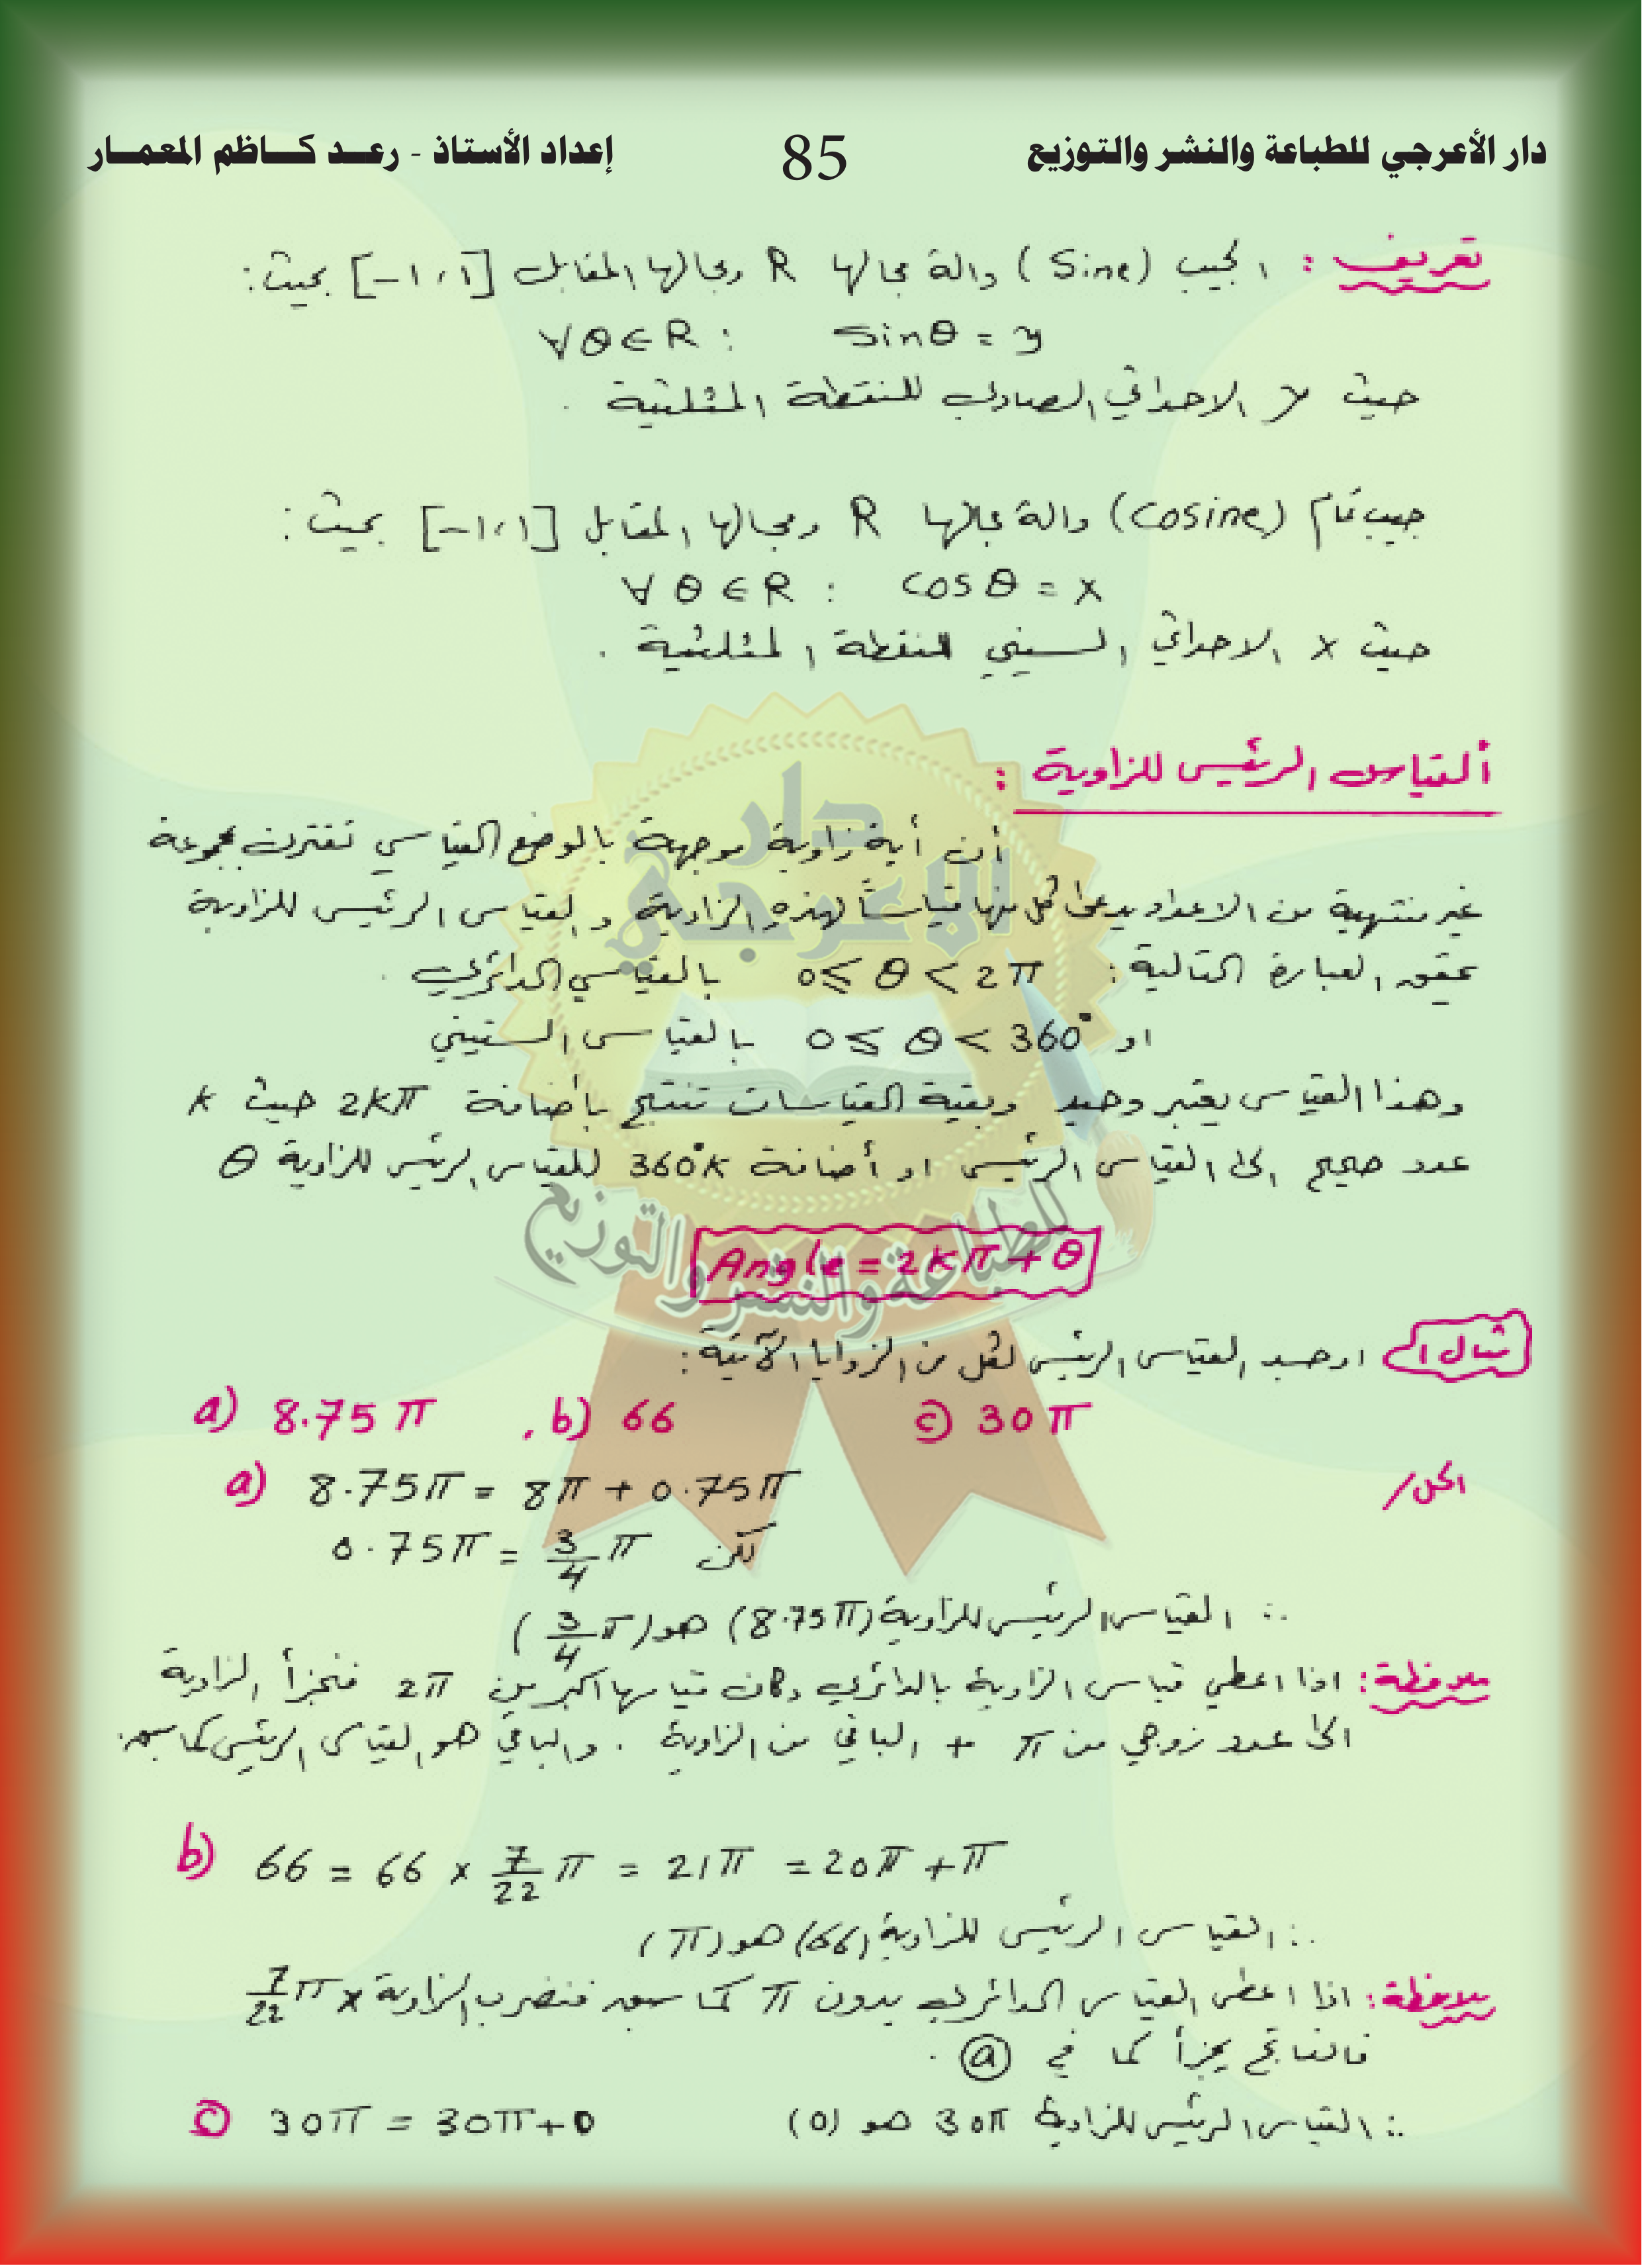 دار الأعرجي للطباعة والنشر والتوزيع 85 إعداد الأستاذ - رعـد كـــاظم المعمـــار
تعريف : الجيب (Sine) دالة مجالها R ومجالها المقابل [-1،1] بحيث:
∀θ∈R : Sinθ = y
حيث y الاحداثي الصادي للنقطة المثلثية .
جيب تمام (Cosine) دالة مجالها R ومجالها المقابل [-1،1] بحيث:
∀θ∈R : Cosθ = x
حيث x الاحداثي السيني للنقطة المثلثية .
ألقياس الرئيس للزاوية :
أن أية زاوية موجهة بالوضع القياسي تقترن بمجموعة
غير منتهية من الاعداد يدعى كل منها قياساً لهذه الزاوية والقياس الرئيس للزاوية
يحقق العبارة التالية : 0 ≤ θ < 2π بالقياس الدائري .
او 0 ≤ θ < 360° بالقياس الستيني
وهذا القياس يعتبر وحيد وبقية القياسات تنتج بأضافة 2kπ حيث k
عدد صحيح الى القياس الرئيس او أضافة 360°k للقياس الرئيس للزاوية θ
دار
الأعرجي
للطباعة والنشر والتوزيع
Angle = 2kπ + θ
مثال1 اوجد القياس الرئيس لكل من الزوايا الآتية :
a) 8.75π , b) 66 c) 30π
الحل/ a) 8.75π = 8π + 0.75π
0.75π = 3/4 π لكن
∴ القياس الرئيس للزاوية (8.75π) هو (3/4 π)
ملاحظة : اذا اعطي قياس الزاوية بالدائري وكان قياسها اكبر من 2π فنجزأ الزاوية
الى عدد زوجي من π + الباقي من الزاوية . والباقي هو القياس الرئيس كما سبق.
b) 66 = 66 × 7/22 π = 21π = 20π + π
∴ القياس الرئيس للزاوية (66) هو (π)
ملاحظة : اذا اعطي القياس الدائري بدون π كما سبق فنضرب الزاوية × 7/22 π
فالناتج يجزأ كما في (a) .
c) 30π = 30π + 0 ∴ القياس الرئيس للزاوية 30π هو (0)